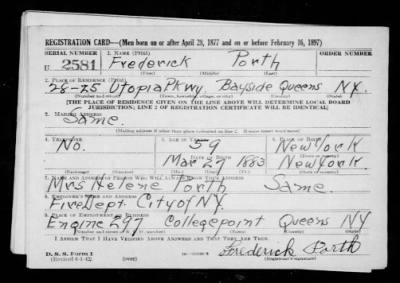 REGISTRATION CARD—(Men born on or after April 28, 1877 and on or before February 16, 1897)
SERIAL NUMBER 1. NAME (Print) ORDER NUMBER
U 2581 Frederick Porth
(First) (Middle) (Last)
2. PLACE OF RESIDENCE (Print)
28-25 Utopia Pkwy. Bayside Queens N.Y.
(Number and street) (Town, township, village, or city) (County) (State)
[THE PLACE OF RESIDENCE GIVEN ON THE LINE ABOVE WILL DETERMINE LOCAL BOARD
JURISDICTION; LINE 2 OF REGISTRATION CERTIFICATE WILL BE IDENTICAL]
3. MAILING ADDRESS
Same.
[Mailing address if other than place indicated on line 2. If same insert word same]
4. TELEPHONE 5. AGE IN YEARS 6. PLACE OF BIRTH
No. 59 New York
DATE OF BIRTH
Mar 27 1883 New York
7. NAME AND ADDRESS OF PERSON WHO WILL ALWAYS KNOW YOUR ADDRESS
Mrs Helene Porth Same.
8. EMPLOYER'S NAME AND ADDRESS
Fire Dept. City of N.Y.
9. PLACE OF EMPLOYMENT OR BUSINESS
Engine 297 Collegepoint Queens NY
I AFFIRM THAT I HAVE VERIFIED ABOVE ANSWERS AND THAT THEY ARE TRUE.
D. S. S. Form 1
(Revised 4-1-42)
Frederick Porth